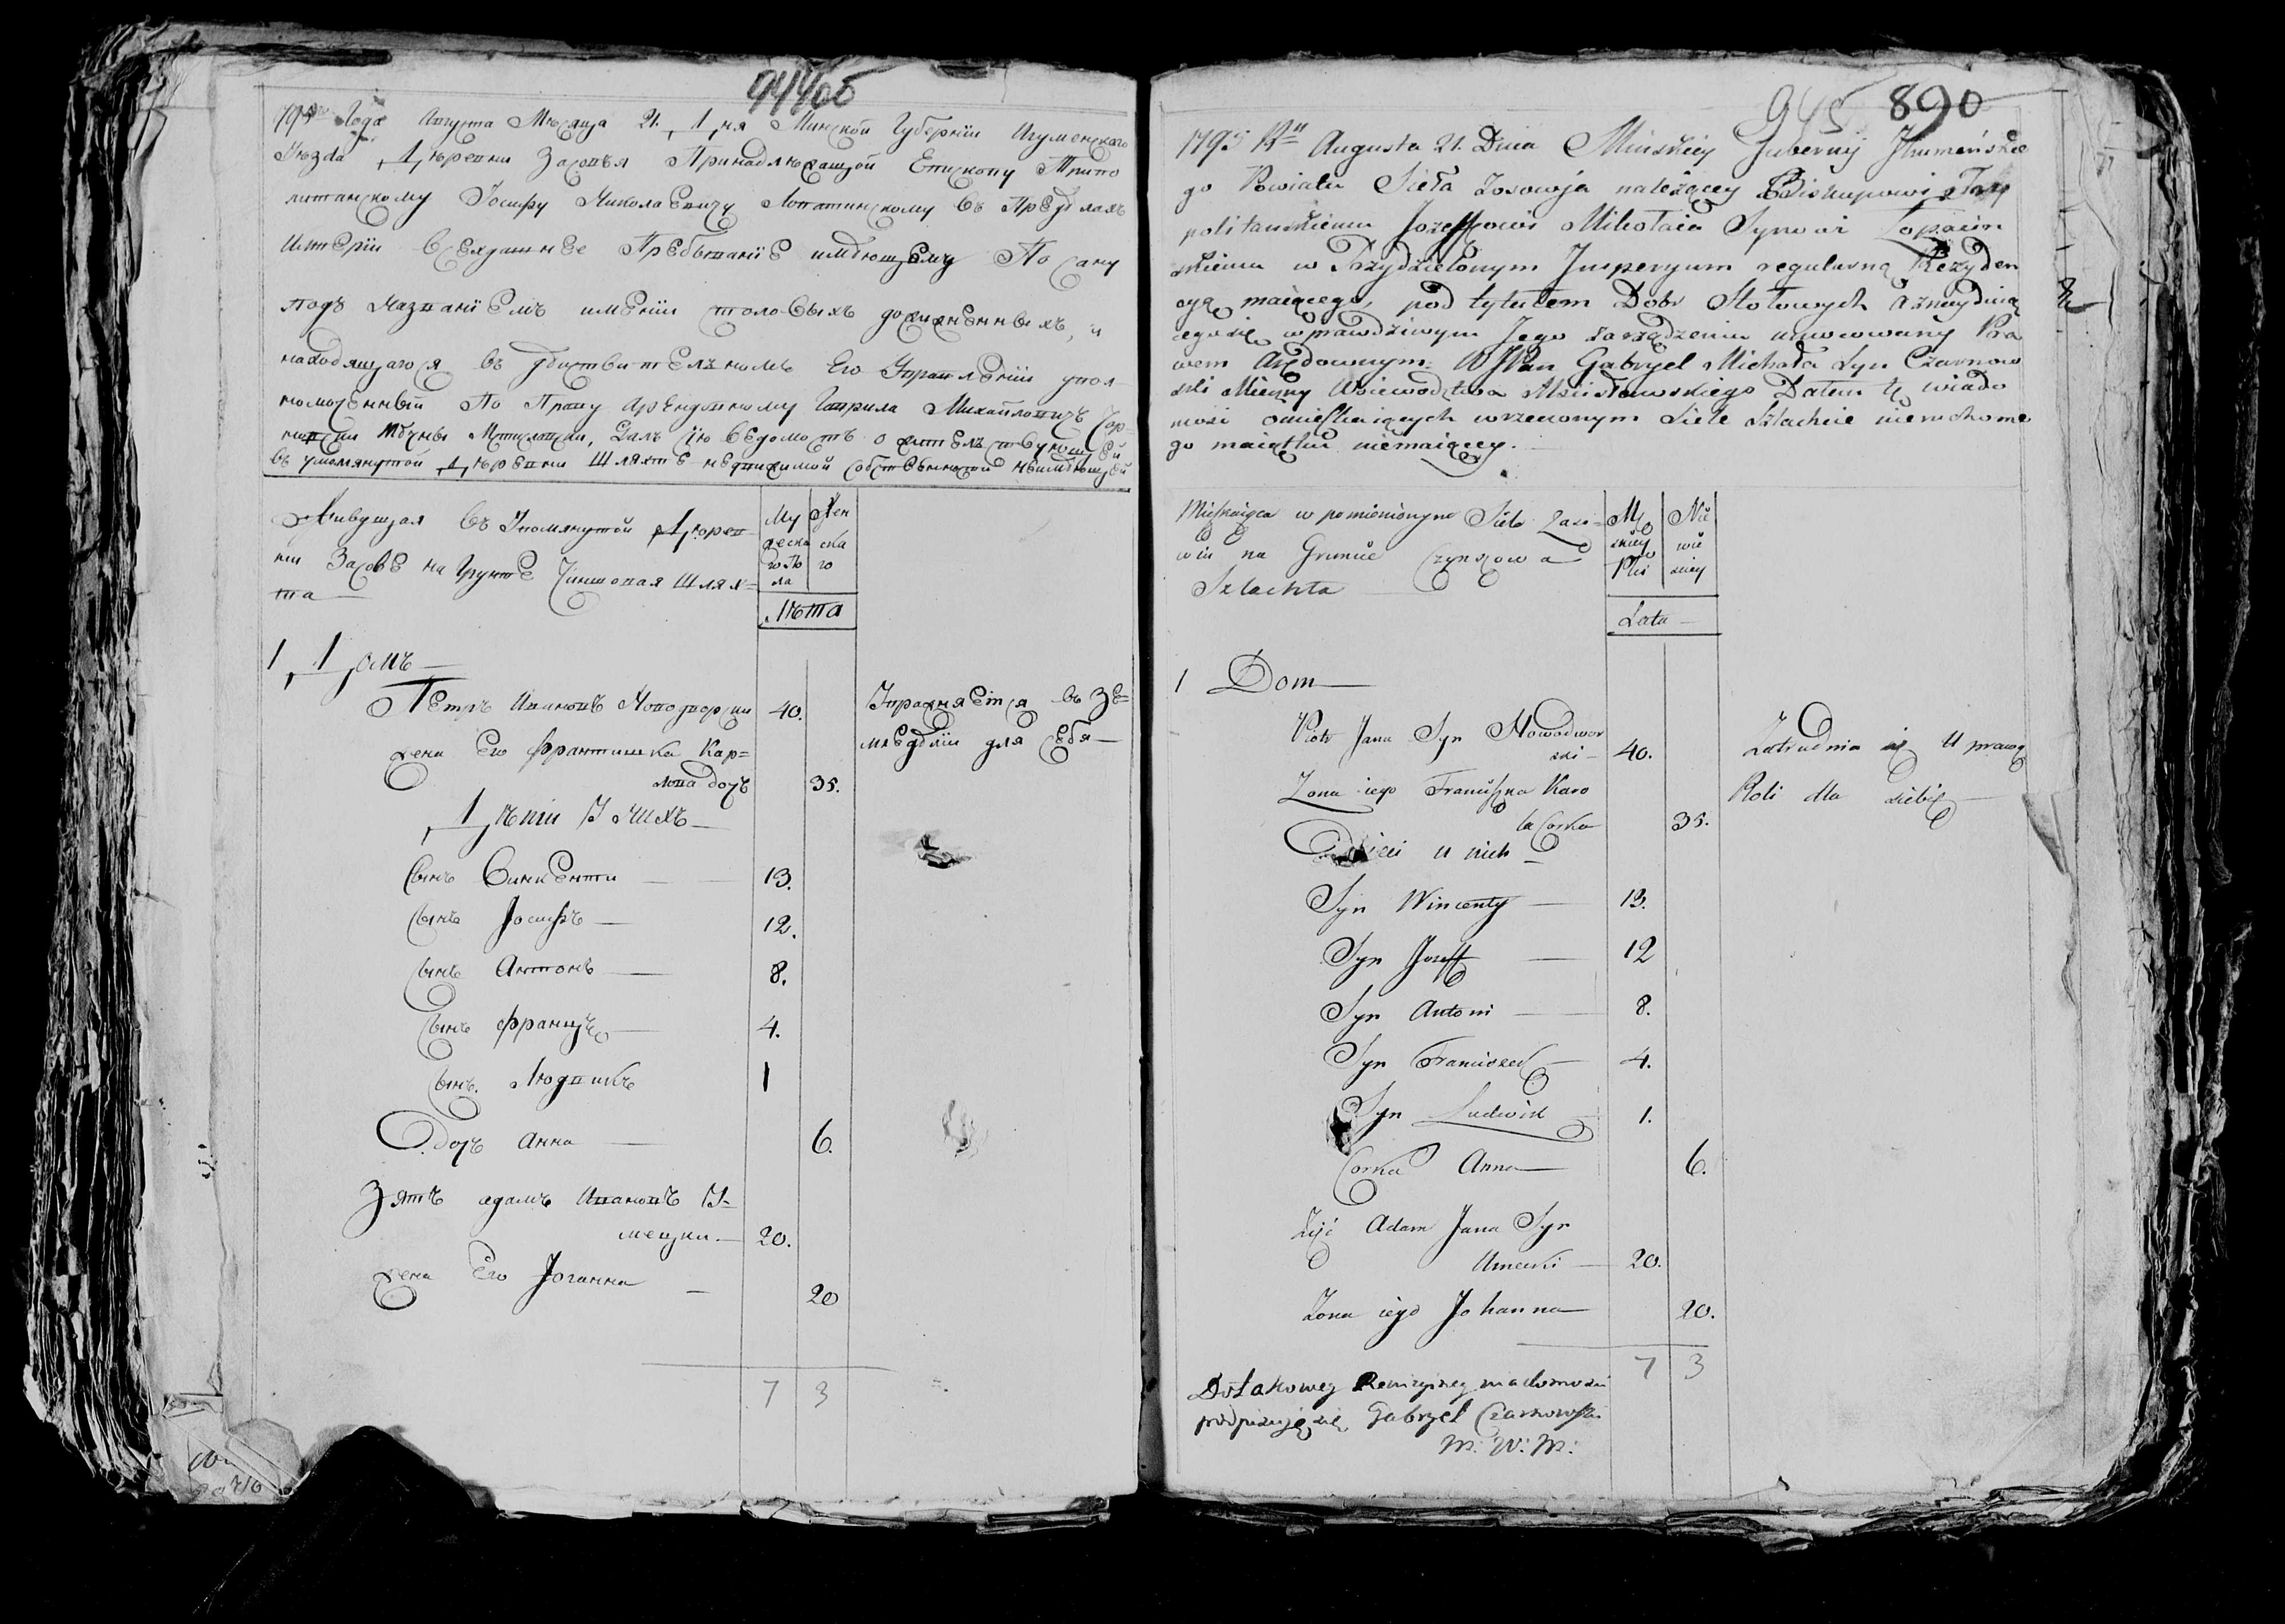 94400
1795 Года Августа Месяца 21. Дня Минской Губернїи Игуменского
Уезда Деревни Засовья Принадлежащой Епископу Трипо
литанскому Іосифу Николаевичу Лопатинскому въ Пределахъ
Имперїи всегдашнее Пребыванїе имеющему По сану
подъ названїемъ именїи столовыхъ доживенныхъ, и
находящагося въ действителъномъ Его Управленїи упол
номоченный По Праву Арендовному Гаврила Михайловичъ Чор-
новски Мечны Мстиславски, Далъ сїю ведомость о жителъствующей
въ упомянутой Деревни Шляхте недвижимой собственности неимеющей
Живущая въ Упомянутой Дерев
ни Засове на Грунте Чиншовая Шлях=
та
Му
жеска
го По
ла
Жен
ска
го
Лета
1 Домъ
Петръ Ивановъ Новодворски 40.
Упражняется въ Зе=
жена Его Франтишка Кар=
мледелїи для себя
лова дочь 35.
Дети У нихъ
Сынъ Винкенти 13.
Сынъ Іосифъ 12.
Сынъ Антонъ 8.
Сынъ Францъ 4.
Сынъ Людвикъ 1
дочь Анна 6.
Зять адамъ Ивановъ У-
мецки 20.
жена Его Іоганна 20
7 3
945 890
1795 Rn Augusta 21. Dnia Minskiey Gubernij Jhumeńskie
go Powiatu Sieła Zosowja należącey Biskupowi Try
politanskiemu Jozeffowi Mikołaia Synowi Łopacin
skiemu w Przydzielonym Imperyum regularną Rezyden
cyą maiącego, pod tytułem Dobr Stołowych
cego się w prawdziwym Jego zarządzeniu umocowany Pra
wem Arędownym. WJPan Gabryel Michała Syn Czarnow
ski Mieczny Woiewodztwa Mscisławskiego Datem tę wiado
mość omieszkaiących wrzeczonym Siele Szlachcie nieruchome
go maiątku niemaiącey.
Mieszkaiąca w pomienionym Siele Zaso=
wiu na Gruncie Czynszowa
Szlachta
Mę
skiey
Płci
Nie
wie
sciey
Lata
1 Dom
Piotr Jana Syn Nowodwor
ski 40.
Zatrudnia się Uprawą
Zona iego Franciszka Karo
Roli dla siebie
la Corka 35.
Dzieci u nich
Syn Wincenty 13.
Syn Joseff 12
Syn Antoni 8.
Syn Franciszek 4.
Syn Ludwik 1.
Corka Anna 6.
Zięć Adam Jana Syn
Umecki 20.
Zona iego Johanna 20.
7 3
Do takowey Rewizyiney wiadomosci
podpisuję się Gabryel Czarnowski
M: W: M: